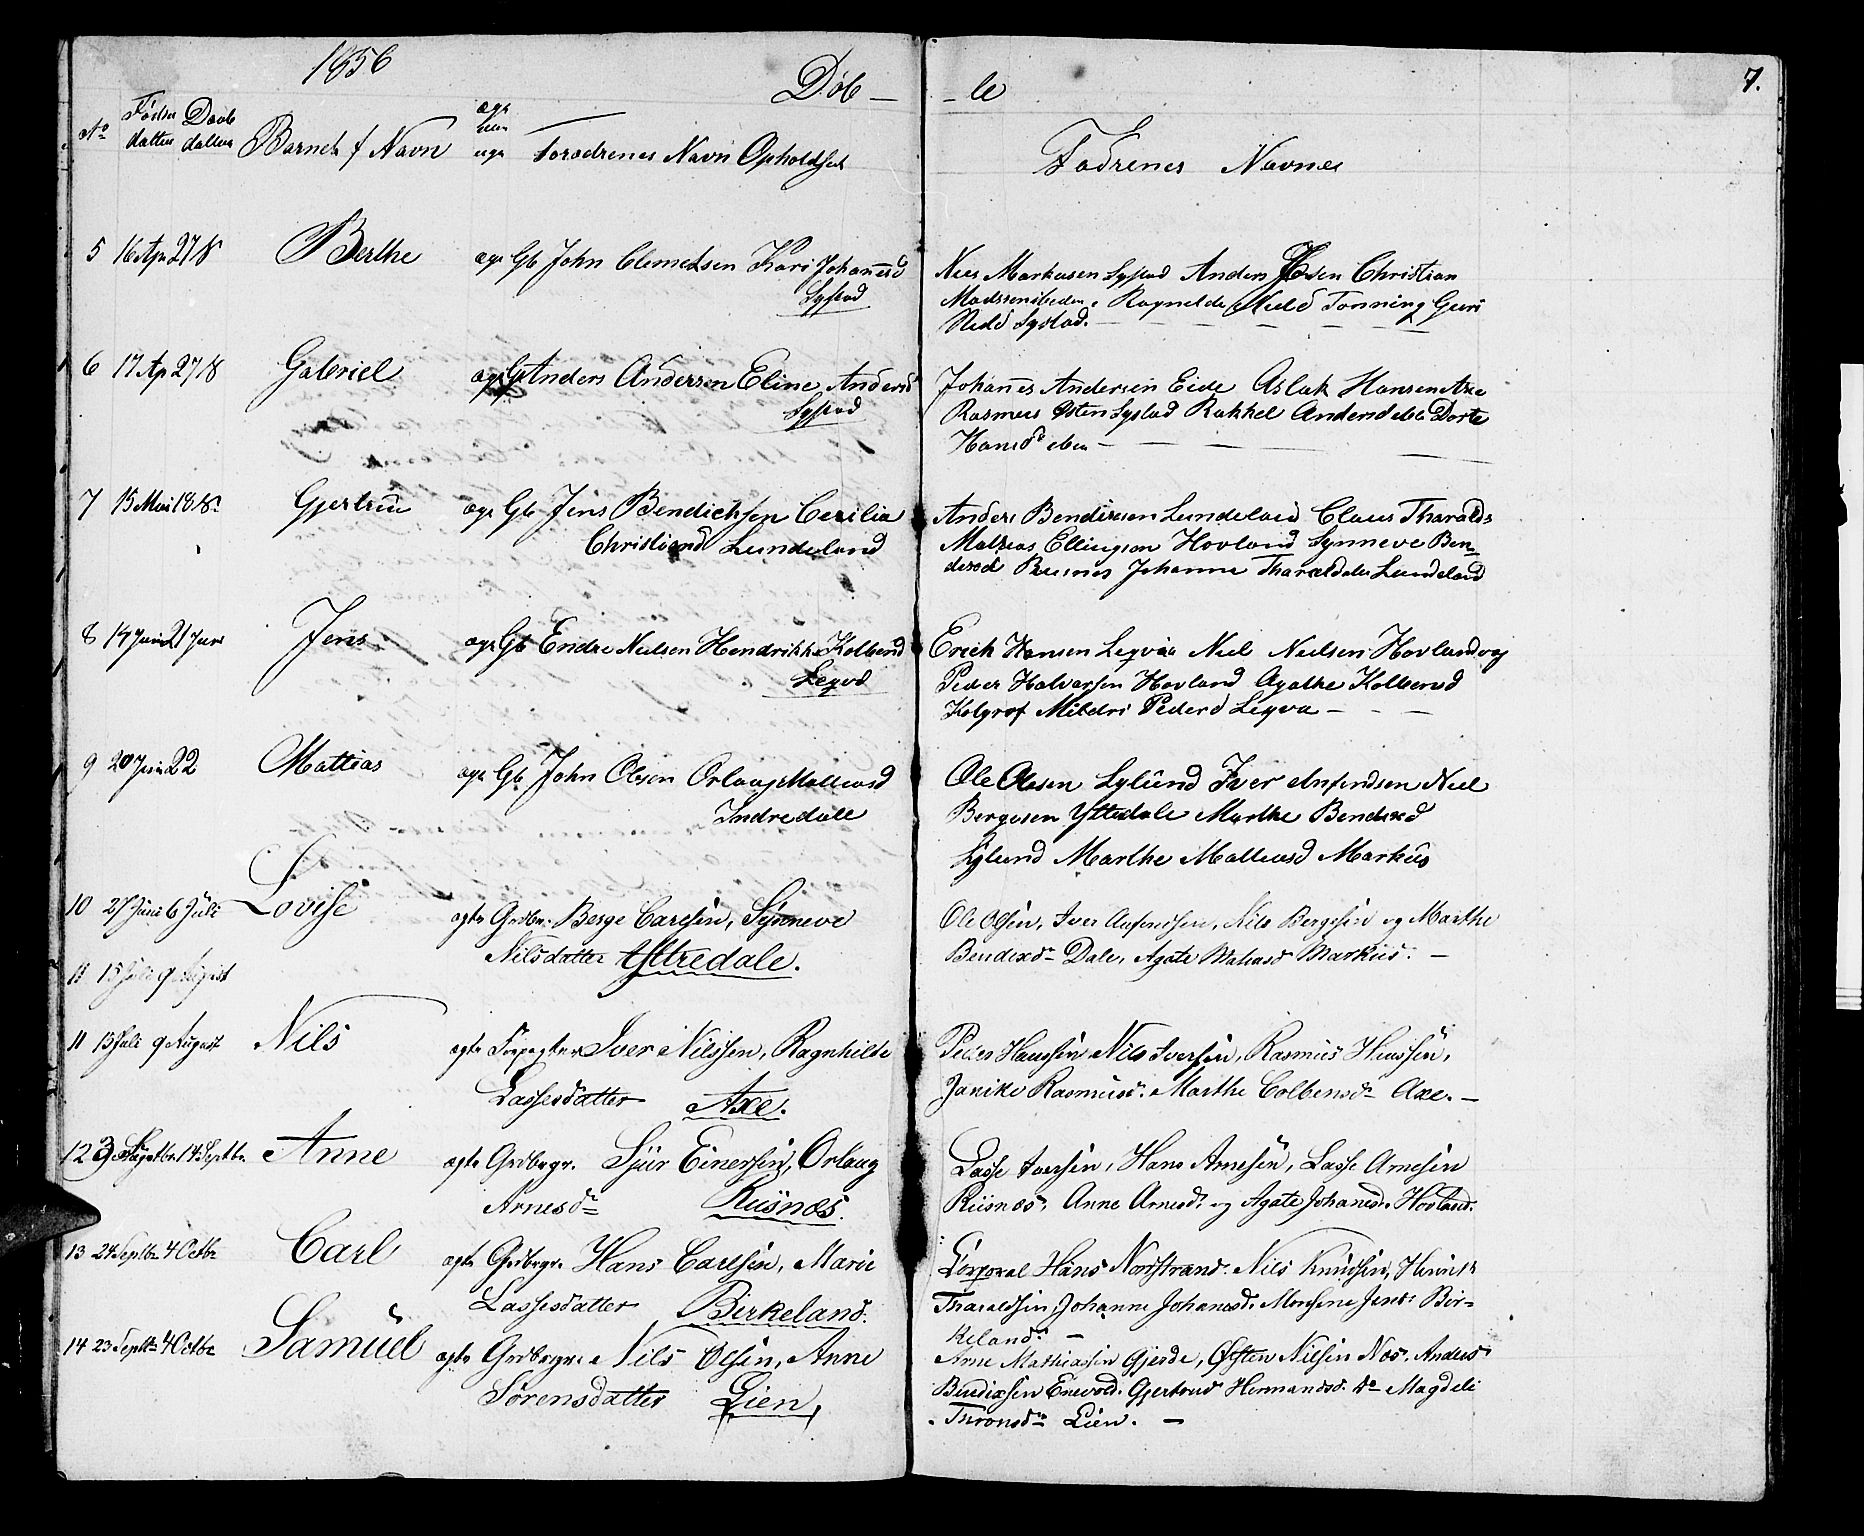 1856
Døb — — te
7.
No Fødsels datten Daabs datten Barnets f Navn ægte eller uægte Forædrenes Navn Opholdsst
Fadrenes Navnes
5 16 Ap 27 Berthe ægt Gb John Clemetsen Kari Johannesd
Systad
Niels Markusen Systad Anders Christian
Ragnilde Nielsd Tonning Guri
Nielsd Systad. —
6 17 Ap 27 Gabriel ægt Anders Andersen Eline Andersd
Systad
Johannes Andersen Eide Aslak Hansen Axe
Rasmus Østen Systad Rakkel Andersd Dorte
Hansd
7 15 Mai 18 Gjertrud ægt Gb Jens Bendichsen Cecilia
Christiansd Lundeland
Anders Bendixsen Lundeland Claus Tharalds
Mathias Ellingsen Hovland Synneve Ben-
dixsd Johanne Tharaldsd Lundeland
8 14 Juni 21 Juni Jens ægt Gb Endre Nielsen Hendrikke Kolbensd
Leqvd
Erich Hansen Leqvia Niel Nielsen Hovland og
Peder Halvorsen Hovland Agathe Kolbensd
Kolgrof Mildri Pedersd Leqva —
9 20 Juni 22 Mattias ægt Gb John Olsen Orlaug Matteusd
Indredale
Ole Olesen Sylund Iver Anfindsen Niel
Bergesen Yttedale Marthe Bendixsd
Sylund Marthe Matteusd Markus
10 27 Juni 6 Juli Lovise ægte Grdbr. Berge Carlsen, Synneve
Nilsdatter Yttredale.
Ole Olsen, Iver Anfindsen, Nils Bergesen og Marthe
Bendixd Dale, Agate Mathiasd Markus. —
11 15 Juli 9 August
11 13 Juli 9 August Nils ægte Forpagter Iver Nilssen, Ragnhilde
Lassesdatter Axe.
Peder Hanssen Nils Iversen, Rasmus Hanssen,
Janike Rasmusd. Marthe Colbensd Axe. —
12 3 Septbr. 14 Septbr. Anne ægte Grdbrgr. Sjur Einersen, Orlaug
Arnesd Riisnæs.
Lasse Iversen, Hans Arnesen, Lasse Arnesen
Riisnæs, Anne Arnesd. og Agate Johanesd. Hovland.
13 24 Septbr 4 Octbr Carl ægte Grdbrgr. Hans Carlsen, Marie
Lassesdatter Birkeland.
Corporal Hans Nordstrand. Nils Knudsen, Henrik
Tharaldsen Johanne Johanesd. Monsine Jensd. Bir-
keland. —
14 23 Septbr 4 Octbr Samuel ægte Grdbrgr. Nils Olsen, Anne
Sørensdatter Lien,
Arne Mathiassen Gjerde, Østen Nilsen Næs, Anders
Bendixsen Enevold. Gjertrud Hermandsd. do Magdeli
Thronsd Lien. —